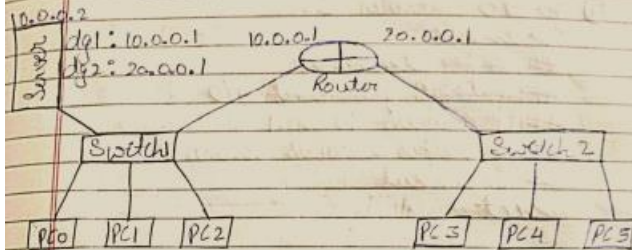 10.0.0.2
Server
dg1: 10.0.0.1
dg2: 20.0.0.1
10.0.0.1
20.0.0.1
Router
Switch1
Switch 2
PC0
PC1
PC2
PC3
PC4
PC5